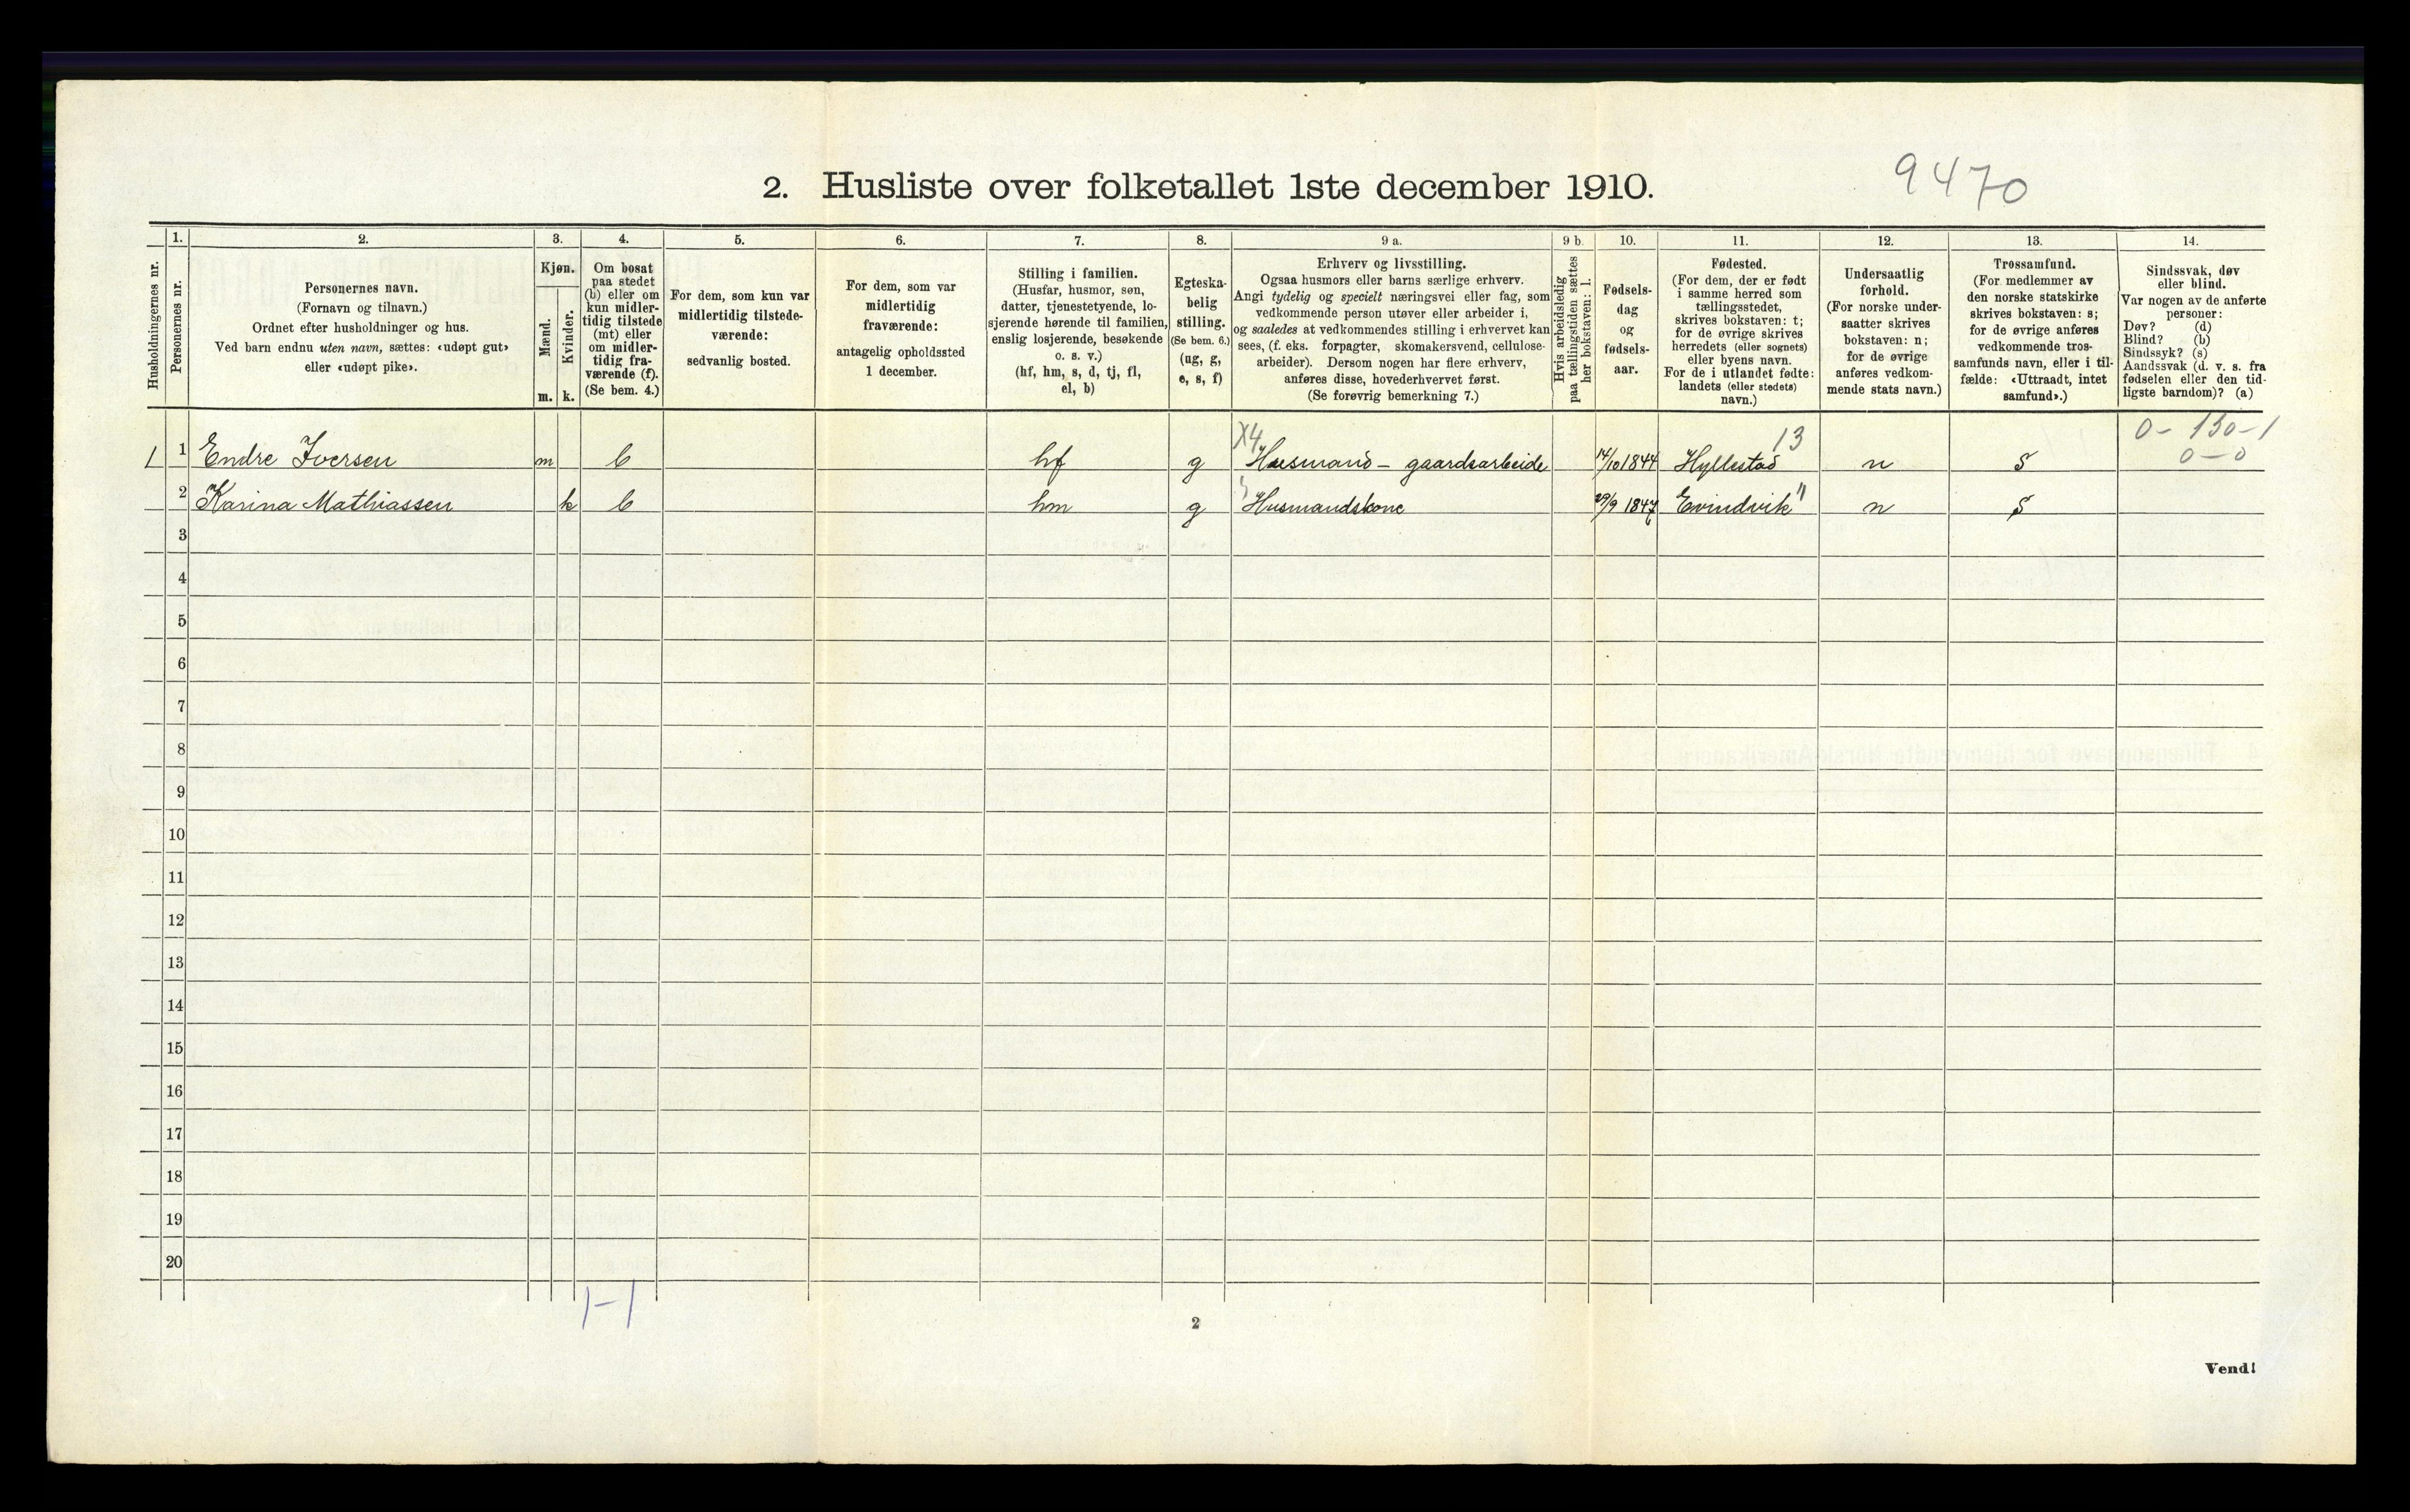 9470
2. Husliste over folketallet 1ste december 1910.
Husholdningernes nr.
1.
Personernes nr.
2.
Personernes navn.
(Fornavn og tilnavn.)
Ordnet efter husholdninger og hus.
Ved barn endnu uten navn, sættes: «udøpt gut»
eller «udøpt pike».
3.
Kjøn.
Mænd.
Kvinder.
m. k.
4.
Om bosat
paa stedet
(b) eller om
kun midler-
tidig tilstede
(mt) eller
om midler-
tidig fra-
værende (f).
(Se bem. 4.)
5.
For dem, som kun var
midlertidig tilstede-
værende:
sedvanlig bosted.
6.
For dem, som var
midlertidig
fraværende:
antagelig opholdssted
1 december.
7.
Stilling i familien.
(Husfar, husmor, søn,
datter, tjenestetyende, lo-
sjerende hørende til familien,
enslig losjerende, besøkende
o. s. v.)
(hf, hm, s, d, tj, fl,
el, b)
8.
Egteska-
belig
stilling.
(Se bem. 6.)
(ug, g,
e, s, f)
9 a.
Erhverv og livsstilling.
Ogsaa husmors eller barns særlige erhverv.
Angi tydelig og specielt næringsvei eller fag, som
vedkommende person utøver eller arbeider i,
og saaledes at vedkommendes stilling i erhvervet kan
sees, (f. eks. forpagter, skomakersvend, cellulose-
arbeider). Dersom nogen har flere erhverv,
anføres disse, hovederhvervet først.
(Se forøvrig bemerkning 7.)
9 b.
Hvis arbeidsledig
paa tællingstiden sættes
her bokstaven: l.
10.
Fødsels-
dag
og
fødsels-
aar.
11.
Fødested.
(For dem, der er født
i samme herred som
tællingsstedet,
skrives bokstaven: t;
for de øvrige skrives
herredets (eller sognets)
eller byens navn.
For de i utlandet fødte:
landets (eller stedets)
navn.)
12.
Undersaatlig
forhold.
(For norske under-
saatter skrives
bokstaven: n;
for de øvrige
anføres vedkom-
mende stats navn.)
13.
Trossamfund.
(For medlemmer av
den norske statskirke
skrives bokstaven: s;
for de øvrige anføres
vedkommende tros-
samfunds navn, eller i til-
fælde: «Uttraadt, intet
samfund».)
14.
Sindssvak, døv
eller blind.
Var nogen av de anførte
personer:
Døv? (d)
Blind? (b)
Sindssyk? (s)
Aandssvak (d. v. s. fra
fødselen eller den tid-
ligste barndom)? (a)
X4 13 0 - 130 - 1
1 1 Endre Iversen m b hf g Husmand - gaardsarbeide 14/10 1844 Hyllestad n s 0 - 0
2 Karina Mathiassen k b hm g Husmandskone 29/9 1847 Evindvik " n s
3
4
5
6
7
8
9
10
11
12
13
14
15
16
17
18
19
20
1-1
2
Vend!